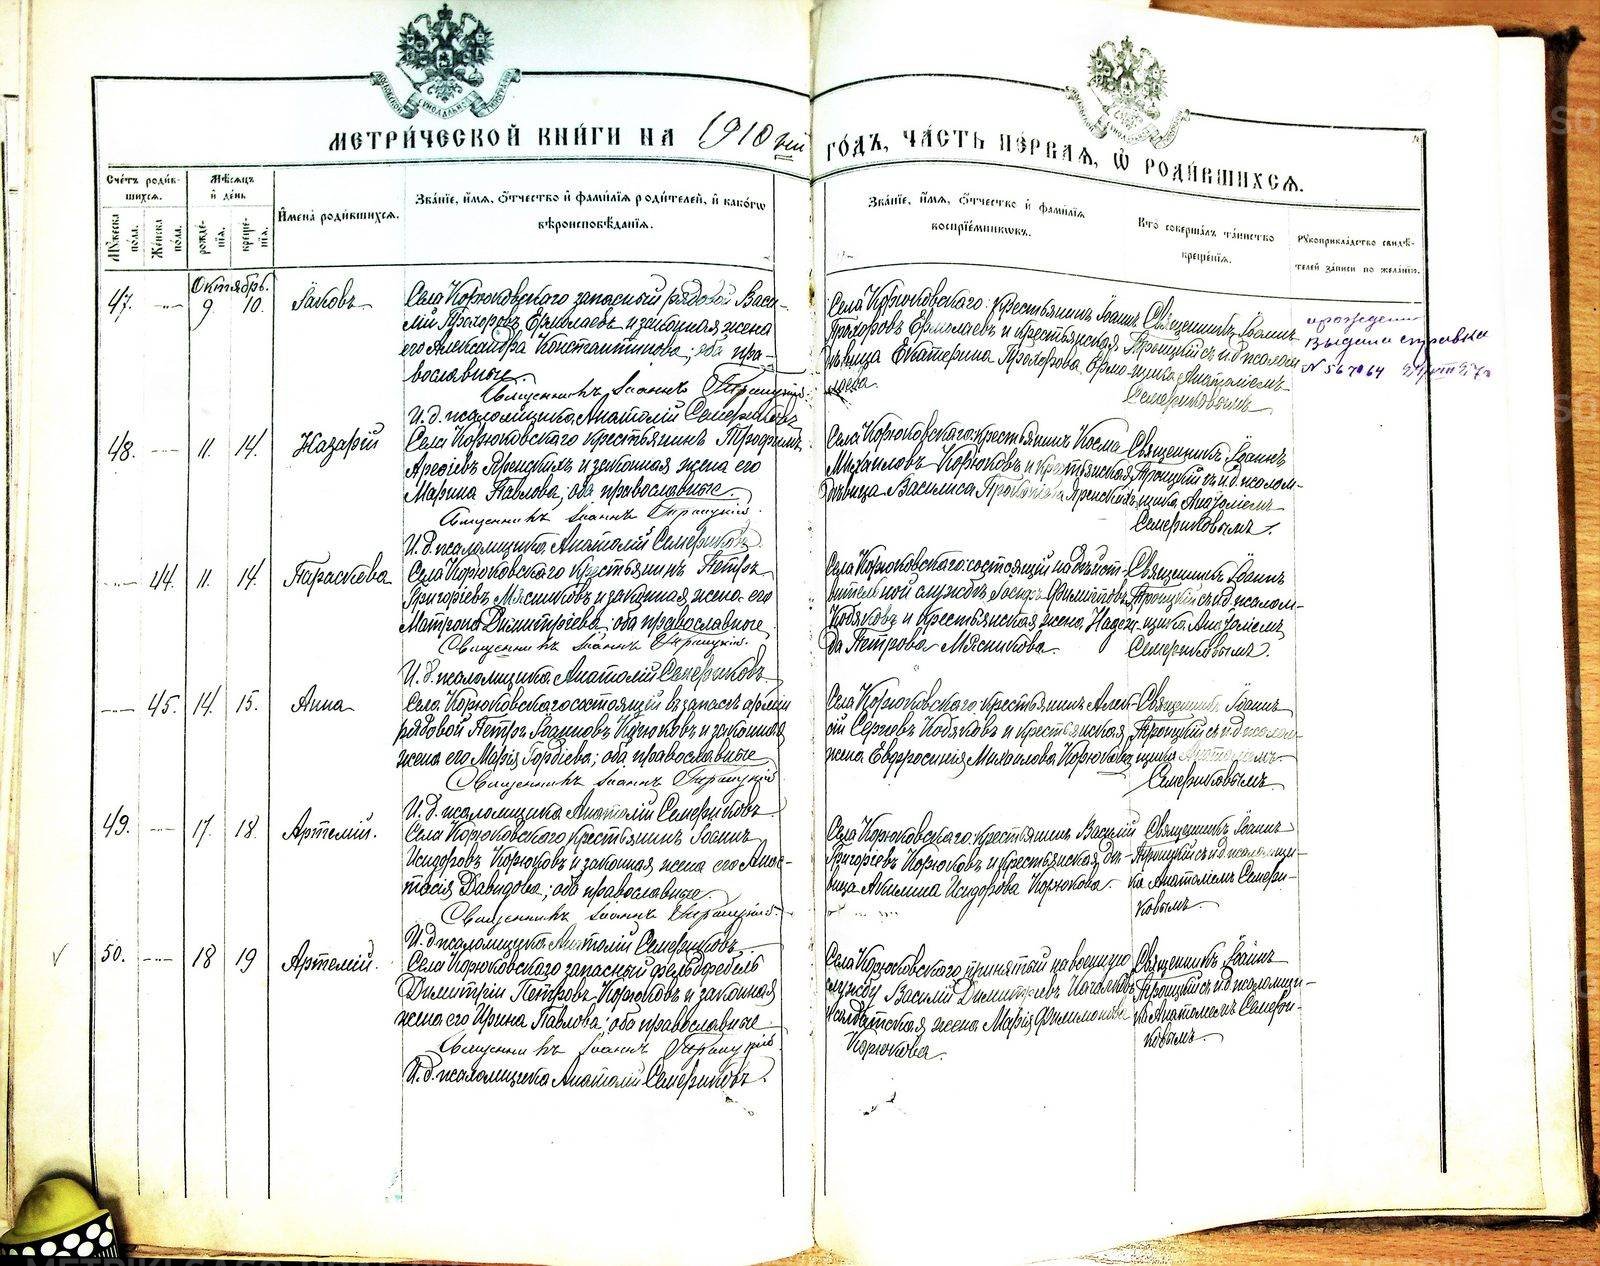 МЕТРИЧЕСКОЙ КНИГИ НА 1910 ый ГОДЪ, ЧАСТЬ ПЕРВАЯ, Ѡ РОДИВШИХСЯ.
Счетъ родив-
шихся.
Мѣсяцъ
и день
Мужеска
пола.
Женска
пола.
рожде-
нія.
креще-
нія.
Имена родившихся.
Званіе, имя, ѻтчество и фамилія родителей, и какогѡ
вѣроисповѣданія.
Званіе, имя, ѻтчество и фамилія
воспріемникѡвъ.
Кто совершалъ таинство
крещенія.
Рукоприкладство свидѣ-
телей записи по желанію.
Октябрь.
47. 9 10. Іаковъ
Села Корюковскаго запасный рядовой Васи-
лій Прохоровъ Ермолаевъ и законная жена
его Александра Константинова; оба пра-
вославные.
Священникъ Іоаннъ Троицкій
И. д. псаломщика Анатолій Семериковъ
Села Корюковскаго крестьянинъ Іоаннъ
Прохоровъ Ермолаевъ и крестьянская
дѣвица Екатерина Прохорова Ермо-
лаева.
Священникъ Іоаннъ
Троицкій съ и. д. псалом-
щика Анатоліемъ
Семериковымъ
Выдана справка
48. 11. 14. Назарій
Села Корюковскаго крестьянинъ Трофимъ
Арефіевъ Яренскихъ и законная жена его
Марина Павлова; оба православные.
Священникъ Іоаннъ Троицкій.
И. д. псаломщика Анатолій Семериковъ.
Села Корюковскаго крестьянинъ Косма
Михаиловъ Корюковъ и крестьянская
дѣвица Василиса Яренскихъ
Священникъ Іоаннъ
Троицкій съ и. д. псалом-
щика Анатоліемъ
Семериковымъ.
44. 11. 14. Параскева
Села Корюковскаго крестьянинъ Петръ
Григоріевъ Мясниковъ и законная жена его
Матрона Димитріева; оба православные
Священникъ Іоаннъ Троицкій.
И. д. псаломщика Анатолій Семериковъ.
Села Корюковскаго состоящій на дѣйст-
вительной службѣ Филиповъ
Кодяковъ и крестьянская жена Надеж-
да Петрова Мясникова.
Священникъ Іоаннъ
Троицкій съ и. д. псалом-
щика Анатоліемъ
Семериковымъ.
45. 14. 15. Анна
Села Корюковскаго состоящій въ запасѣ арміи
рядовой Петръ Іоанновъ Корюковъ и законная
жена его Марія Гордіева; оба православные
Священникъ Іоаннъ Троицкій
И. д. псаломщика Анатолій Семериковъ.
Села Корюковскаго крестьянинъ Алек-
сій Сергіевъ Кодяковъ и крестьянская
жена Евфросинія Михаилова Корюкова
Священникъ Іоаннъ
Троицкій съ и. д. псалом-
щика Анатоліемъ
Семериковымъ
49. 17. 18. Артемій.
Села Корюковскаго крестьянинъ Іоаннъ
Исидоровъ Корюковъ и законная жена его Анас-
тасія Давидова; оба православные.
Священникъ Іоаннъ Троицкій.
И. д. псаломщика Анатолій Семериковъ.
Села Корюковскаго крестьянинъ Василій
Григоріевъ Корюковъ и крестьянская дѣ-
вица Акилина Исидорова Корюкова.
Священникъ Іоаннъ
Троицкій съ и. д. псаломщи-
ка Анатоліемъ Семери-
ковымъ
50. 18 19 Артемій.
Села Корюковскаго запасный фельдфебель
Димитрій Петровъ Корюковъ и законная
жена его Ирина Павлова; оба православные
Священникъ Іоаннъ Троицкій.
И. д. псаломщика Анатолій Семериковъ.
Села Корюковскаго принятый на военную
службу Василій Димитріевъ
солдатская жена Марія Филимонова
Корюкова.
Священникъ Іоаннъ
Троицкій съ и. д. псаломщи-
ка Анатоліемъ Семери-
ковымъ.